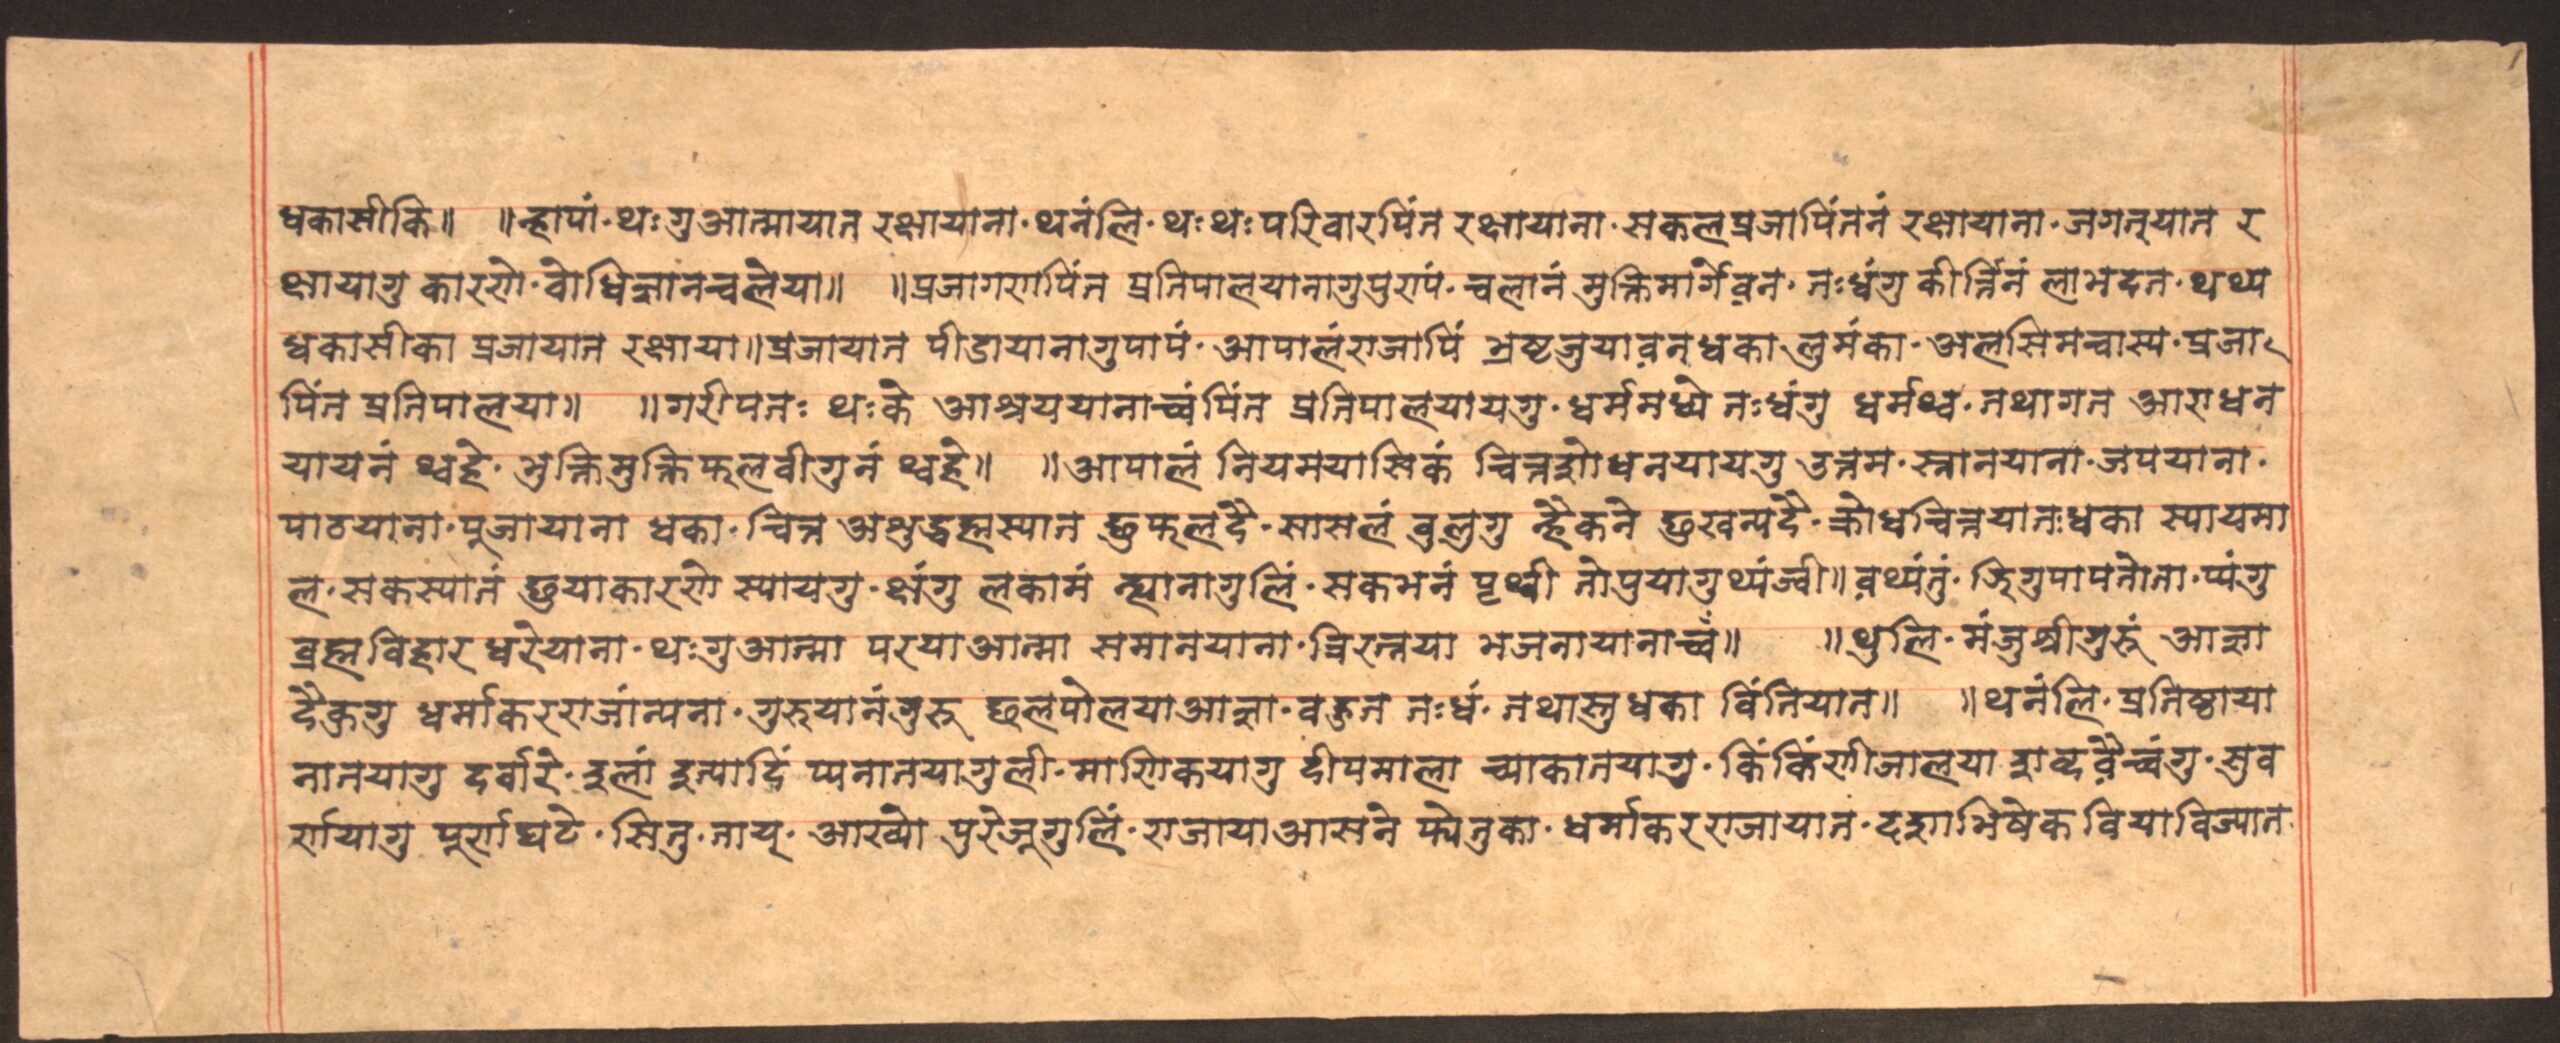 धकासीकि॥ ॥न्हापां·थःगुआत्मायात रक्षायाना·थनंलि·थःथःपरिवारपिंत रक्षायाना·सकलप्रजापिंतनं रक्षायाना·जगत्‌यात र
क्षायागु कारणे·बोधिज्ञानचलेया॥ ॥प्रजागणपिंत प्रतिपालयानागुपुण्यं·चलानं मुक्तिमार्गेवन·तःधंगु कीर्त्तिनं लाभदत·थथ्य
धकासीका प्रजायात रक्षाया॥प्रजायात पीडायानागुपापं·आपालंराजापिं भ्रष्टजुयावन्‌धका लुमंका·अलसिमचास्य·प्रजा
पिंत प्रतिपालया॥ ॥गरीपतः थःके आश्रययानाच्वंपिंत प्रतिपालयायगु·धर्ममध्ये तःधंगु धर्मथ्व·तथागत आराधन
यायनं थ्वहे·भुक्तिमुक्तिफलबीगुनं थ्वहे॥ ॥आपालं नियमयासिकं चित्तशोधनयायगु उत्तम·स्नानयाना·जपयाना·
पाठयाना·पूजायाना धका·चित्त अशुद्धह्मस्यात छुफलदै·सासलं बुलुगु न्हैकने छुखन्यदै·क्रोधचित्तयातःधका स्यायमा
ल·सकस्यातं छुयाकारणे स्यायगु· लकामं न्ह्यानागुलिं·सकभनं पृथ्वी तोपुयागुथ्यंज्वी॥वथ्यंतुं·जिगुपापतोता·प्यंगु
ब्रह्मविहार धरेयाना·थःगुआत्मा परयाआत्मा समानयाना·त्रिरत्नया भजनायानाच्वं॥ ॥थुलि·मंजुश्रीगुरुं आज्ञा
दैकुगु धर्माकरराजांन्यना·गुरुयानंगुरु छलपोलयाआज्ञा·बहुत तःधं·तथास्तुधका विंतियात॥ ॥थनंलि·प्रतिष्ठाया
नातयागु दर्वारे·इलां इत्यादिं प्यनातयागुली·माणिकयागु दीपमाला च्याकातयागु·किंकिंणीजालया शब्दवैच्वंगु·सुव
र्णयागु पूर्णघटे·सितु·ताय्·आखेो पुरेजूगुलिं·राजायाआसने फ्येतुका·धर्माकरराजायात·दशाभिषेक बियाविज्यात